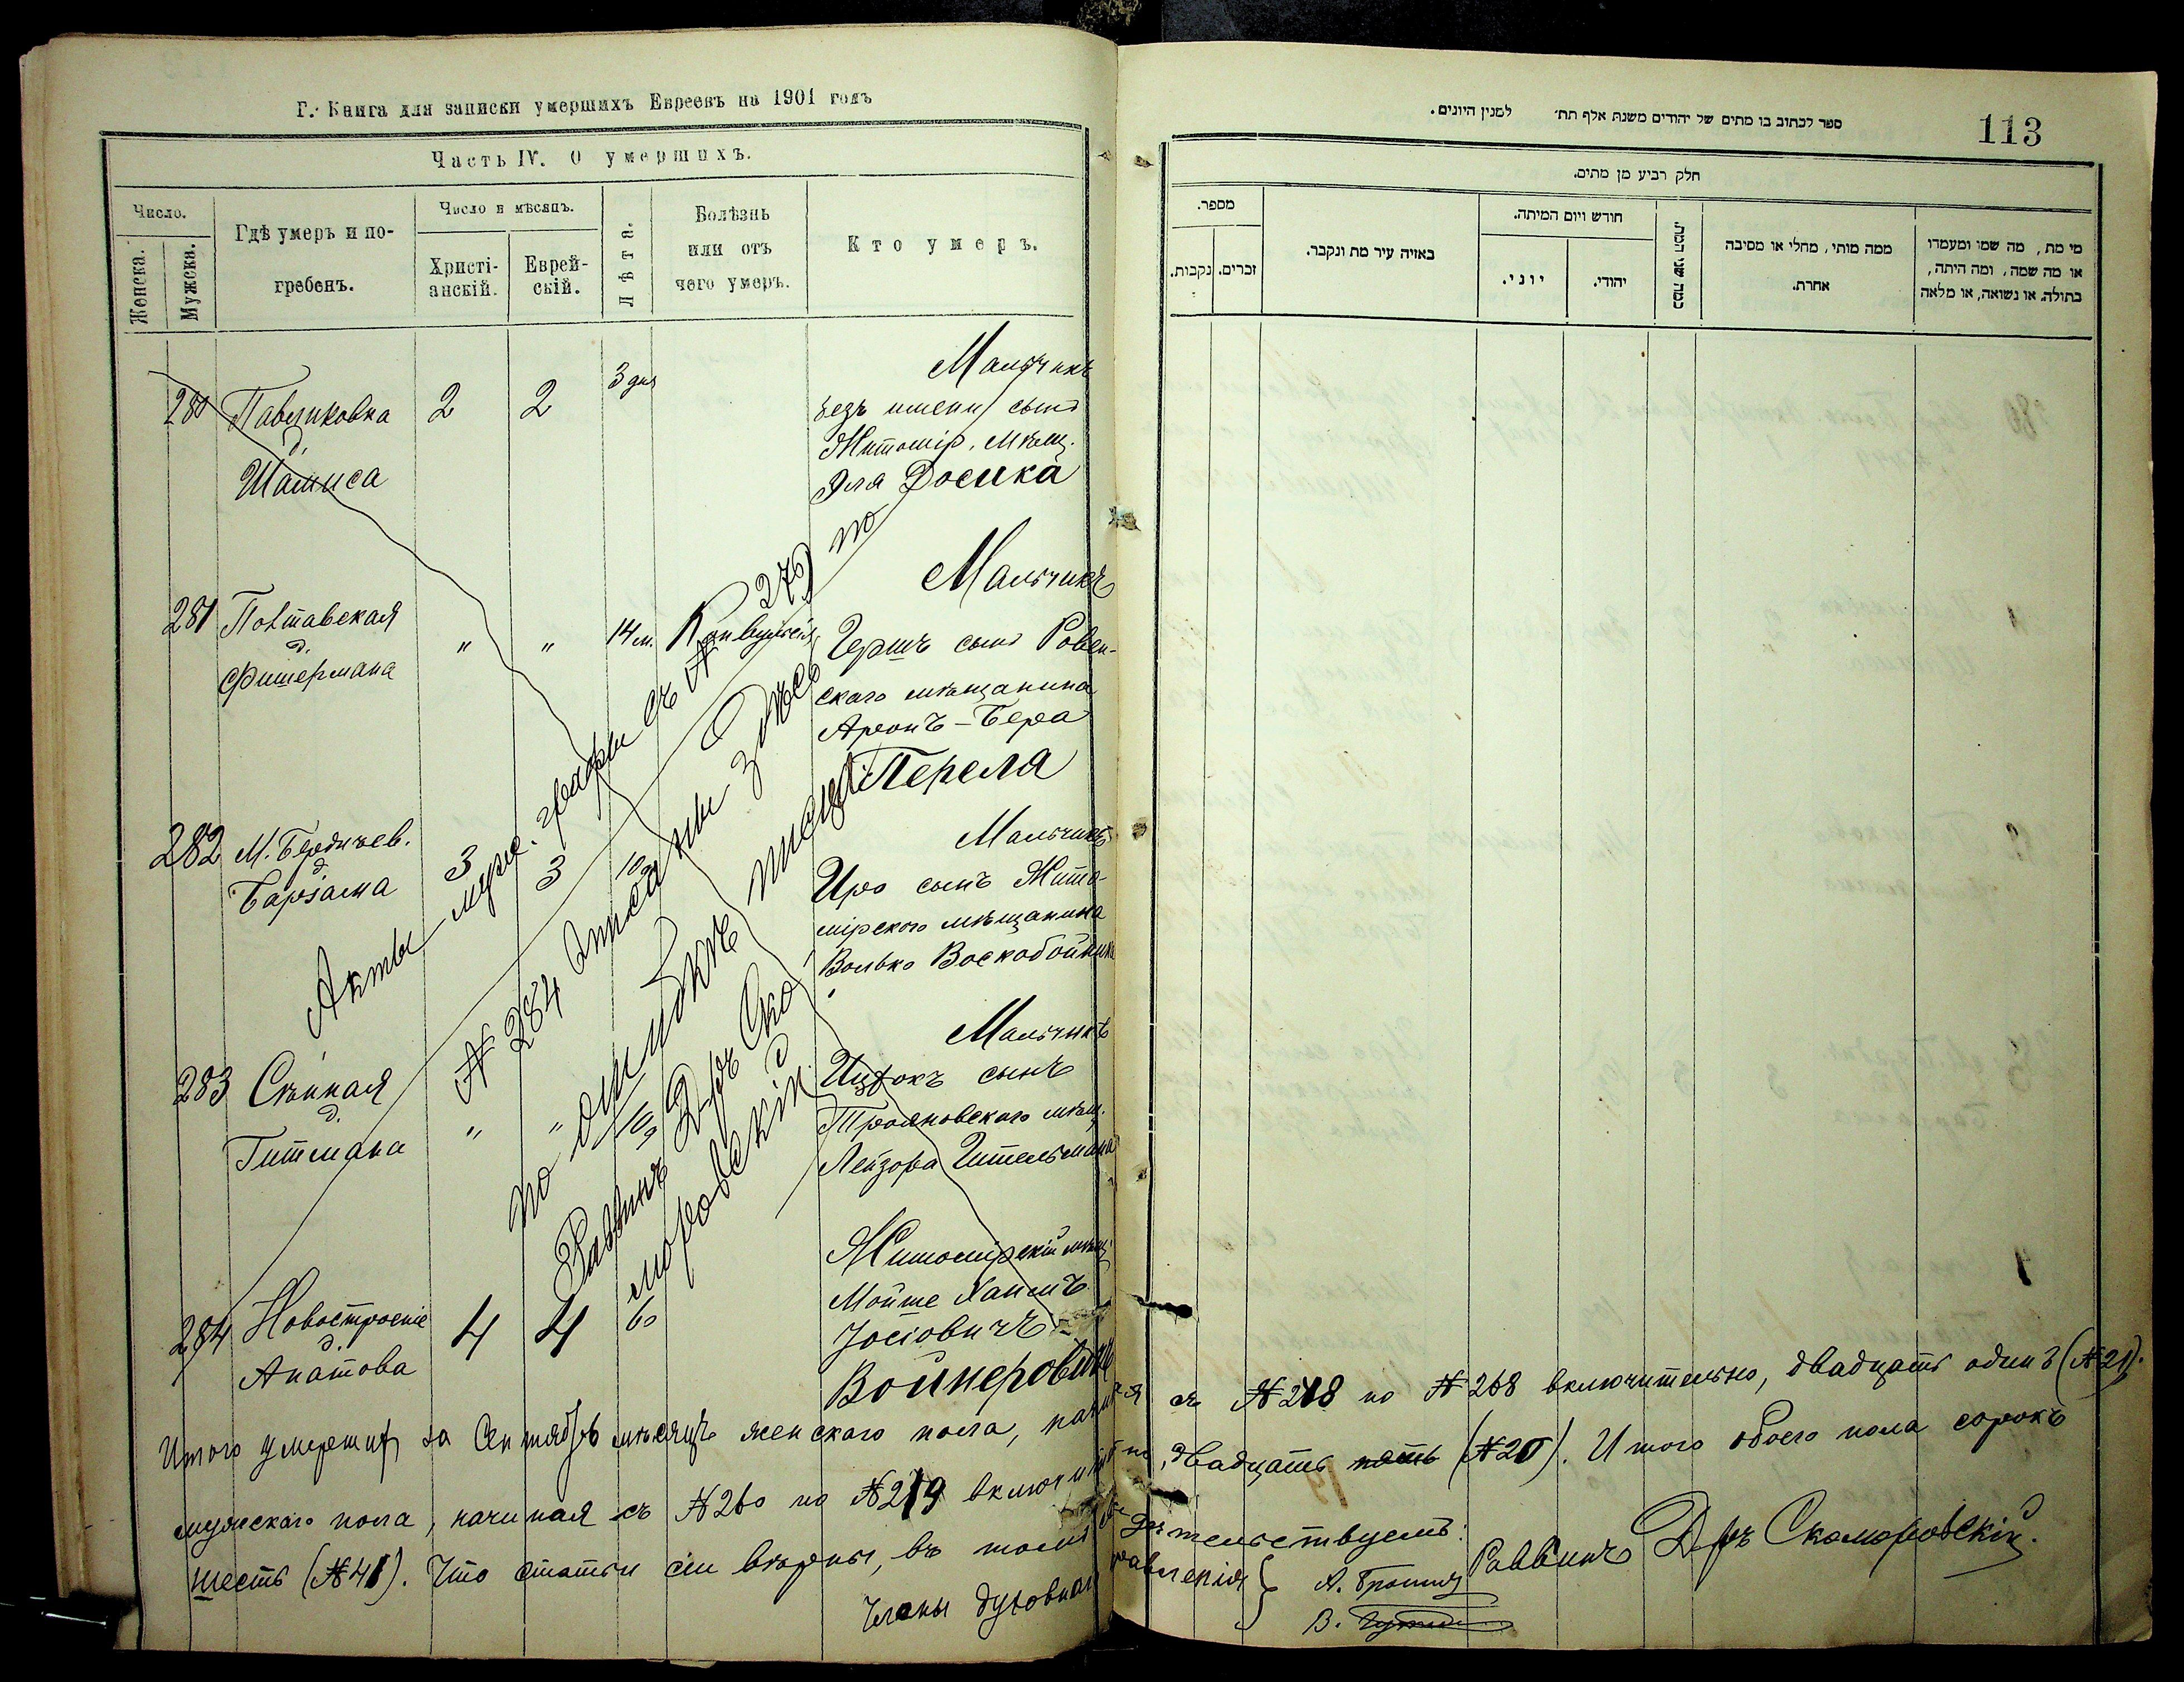 Г. Книга для записки умершихъ Евреевъ на 1901 годъ
Часть IV. О умершихъ.
Число.
Женска.
Мужска.
Гдѣ умеръ и по-
гребенъ.
Число и мѣсяцъ.
Христі-
анскій.
Еврей-
скій.
Лѣта.
Болѣзнь
или отъ
чего умеръ.
Кто умеръ.
280 Павликовка
д.
Шамиса
2 2 3 дня
Мальчикъ
безъ имени сынъ
Житомір. мѣщ.
Эля Досика
281
д.
Фишермана
" " 14 м.
Мальчикъ
Гершъ сынъ Ровен-
скаго мѣщанина
Аронъ-Бера
Переля
282 М. Бердичев.
д.
3 3
Мальчикъ
сынъ Жито-
мірскаго мѣщанина
Волько Воскобойника
283 Сѣнная
д.
Гитмана
" "
Мальчикъ
Ицхокъ сынъ
Трояновскаго мѣщ.
Лейзора Гительмана
284 Новостроеніе
д.
Апатова
4 4 60
Житомірскій мѣщ.
Мойше Хаимъ
Іосіовичъ
Войнеровичъ
Акты муж. графы съ № 279 по
№ 284 описаны здѣсь
по ошибкѣ
Раввинъ Д-ръ Ско-
моровскій
Итого умершихъ за Сентябрь мѣсяцъ женскаго пола, начиная
мужескаго пола, начиная съ № 260 по № 279 включительно,
шесть (№ 41). Что статьи сіи вѣрны, въ томъ
Члены духовнаго
ספר לכתוב בו מתים של יהודים משנת אלף תת׳ למנין היונים.
113
חלק רביע מן מתים.
מספר.
נקבות.
זכרים.
באיזה עיר מת ונקבר.
חודש ויום המיתה.
יוני.
יהודי.
ממה מותי, מחלי או מסיבה
אחרת.
מי מת, מה שמו ומעמדו
או מה שמה, ומה היתה,
בתולה. או נשואה, או מלאה
съ № 248 по № 268 включительно, двадцать одинъ (№ 21).
двадцать пять (№ 20). Итого обоего пола сорокъ
правленія
Раввинъ Д-ръ Скоморовскій.